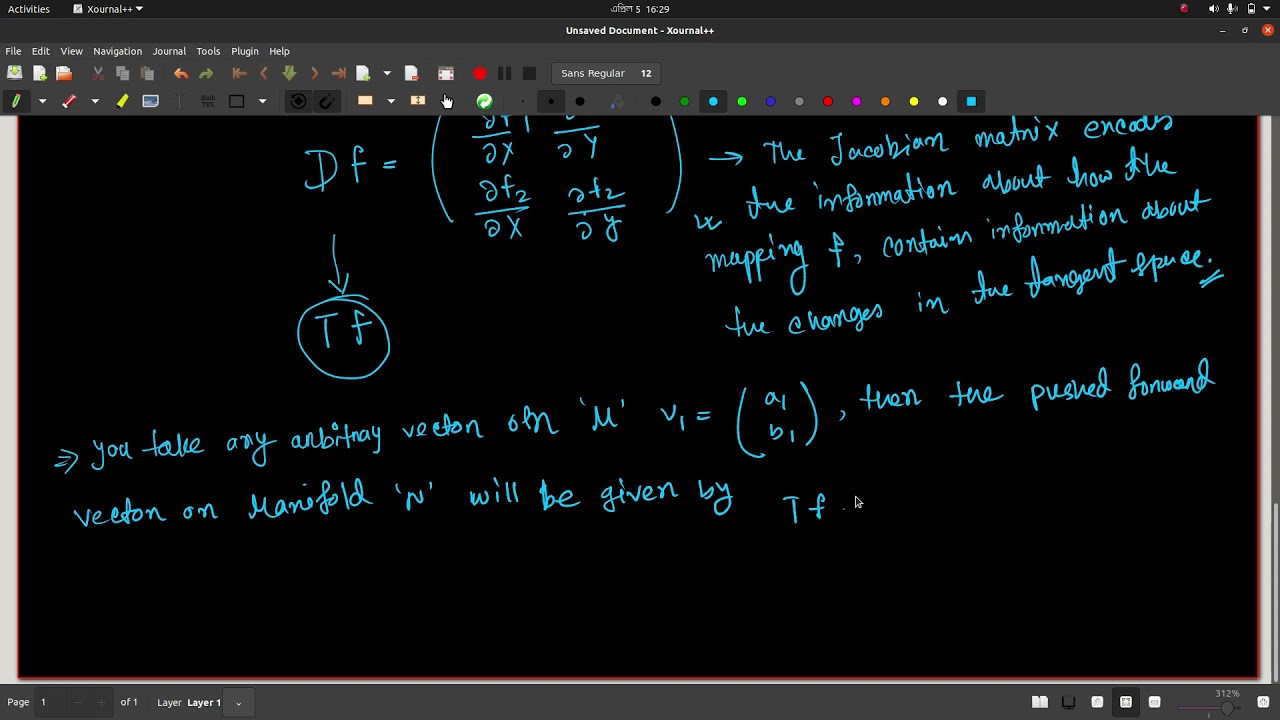 Activities Xournal++ এপ্রিল 5 16:29
Unsaved Document - Xournal++
File Edit View Navigation Journal Tools Plugin Help
Sans Regular 12
Df = ( ∂f1/∂x ∂/∂y ; ∂f2/∂x ∂f2/∂y ) → The Jacobian matrix encods
the information about how the
mapping f, contain information about
the changes in the tangent space.
Tf
⇒ you take any arbitray vector on 'M' v1 = ( a1 ; b1 ), then the pushed forward
vector on Manifold 'N' will be given by Tf .
Page 1 of 1 Layer Layer 1 312%